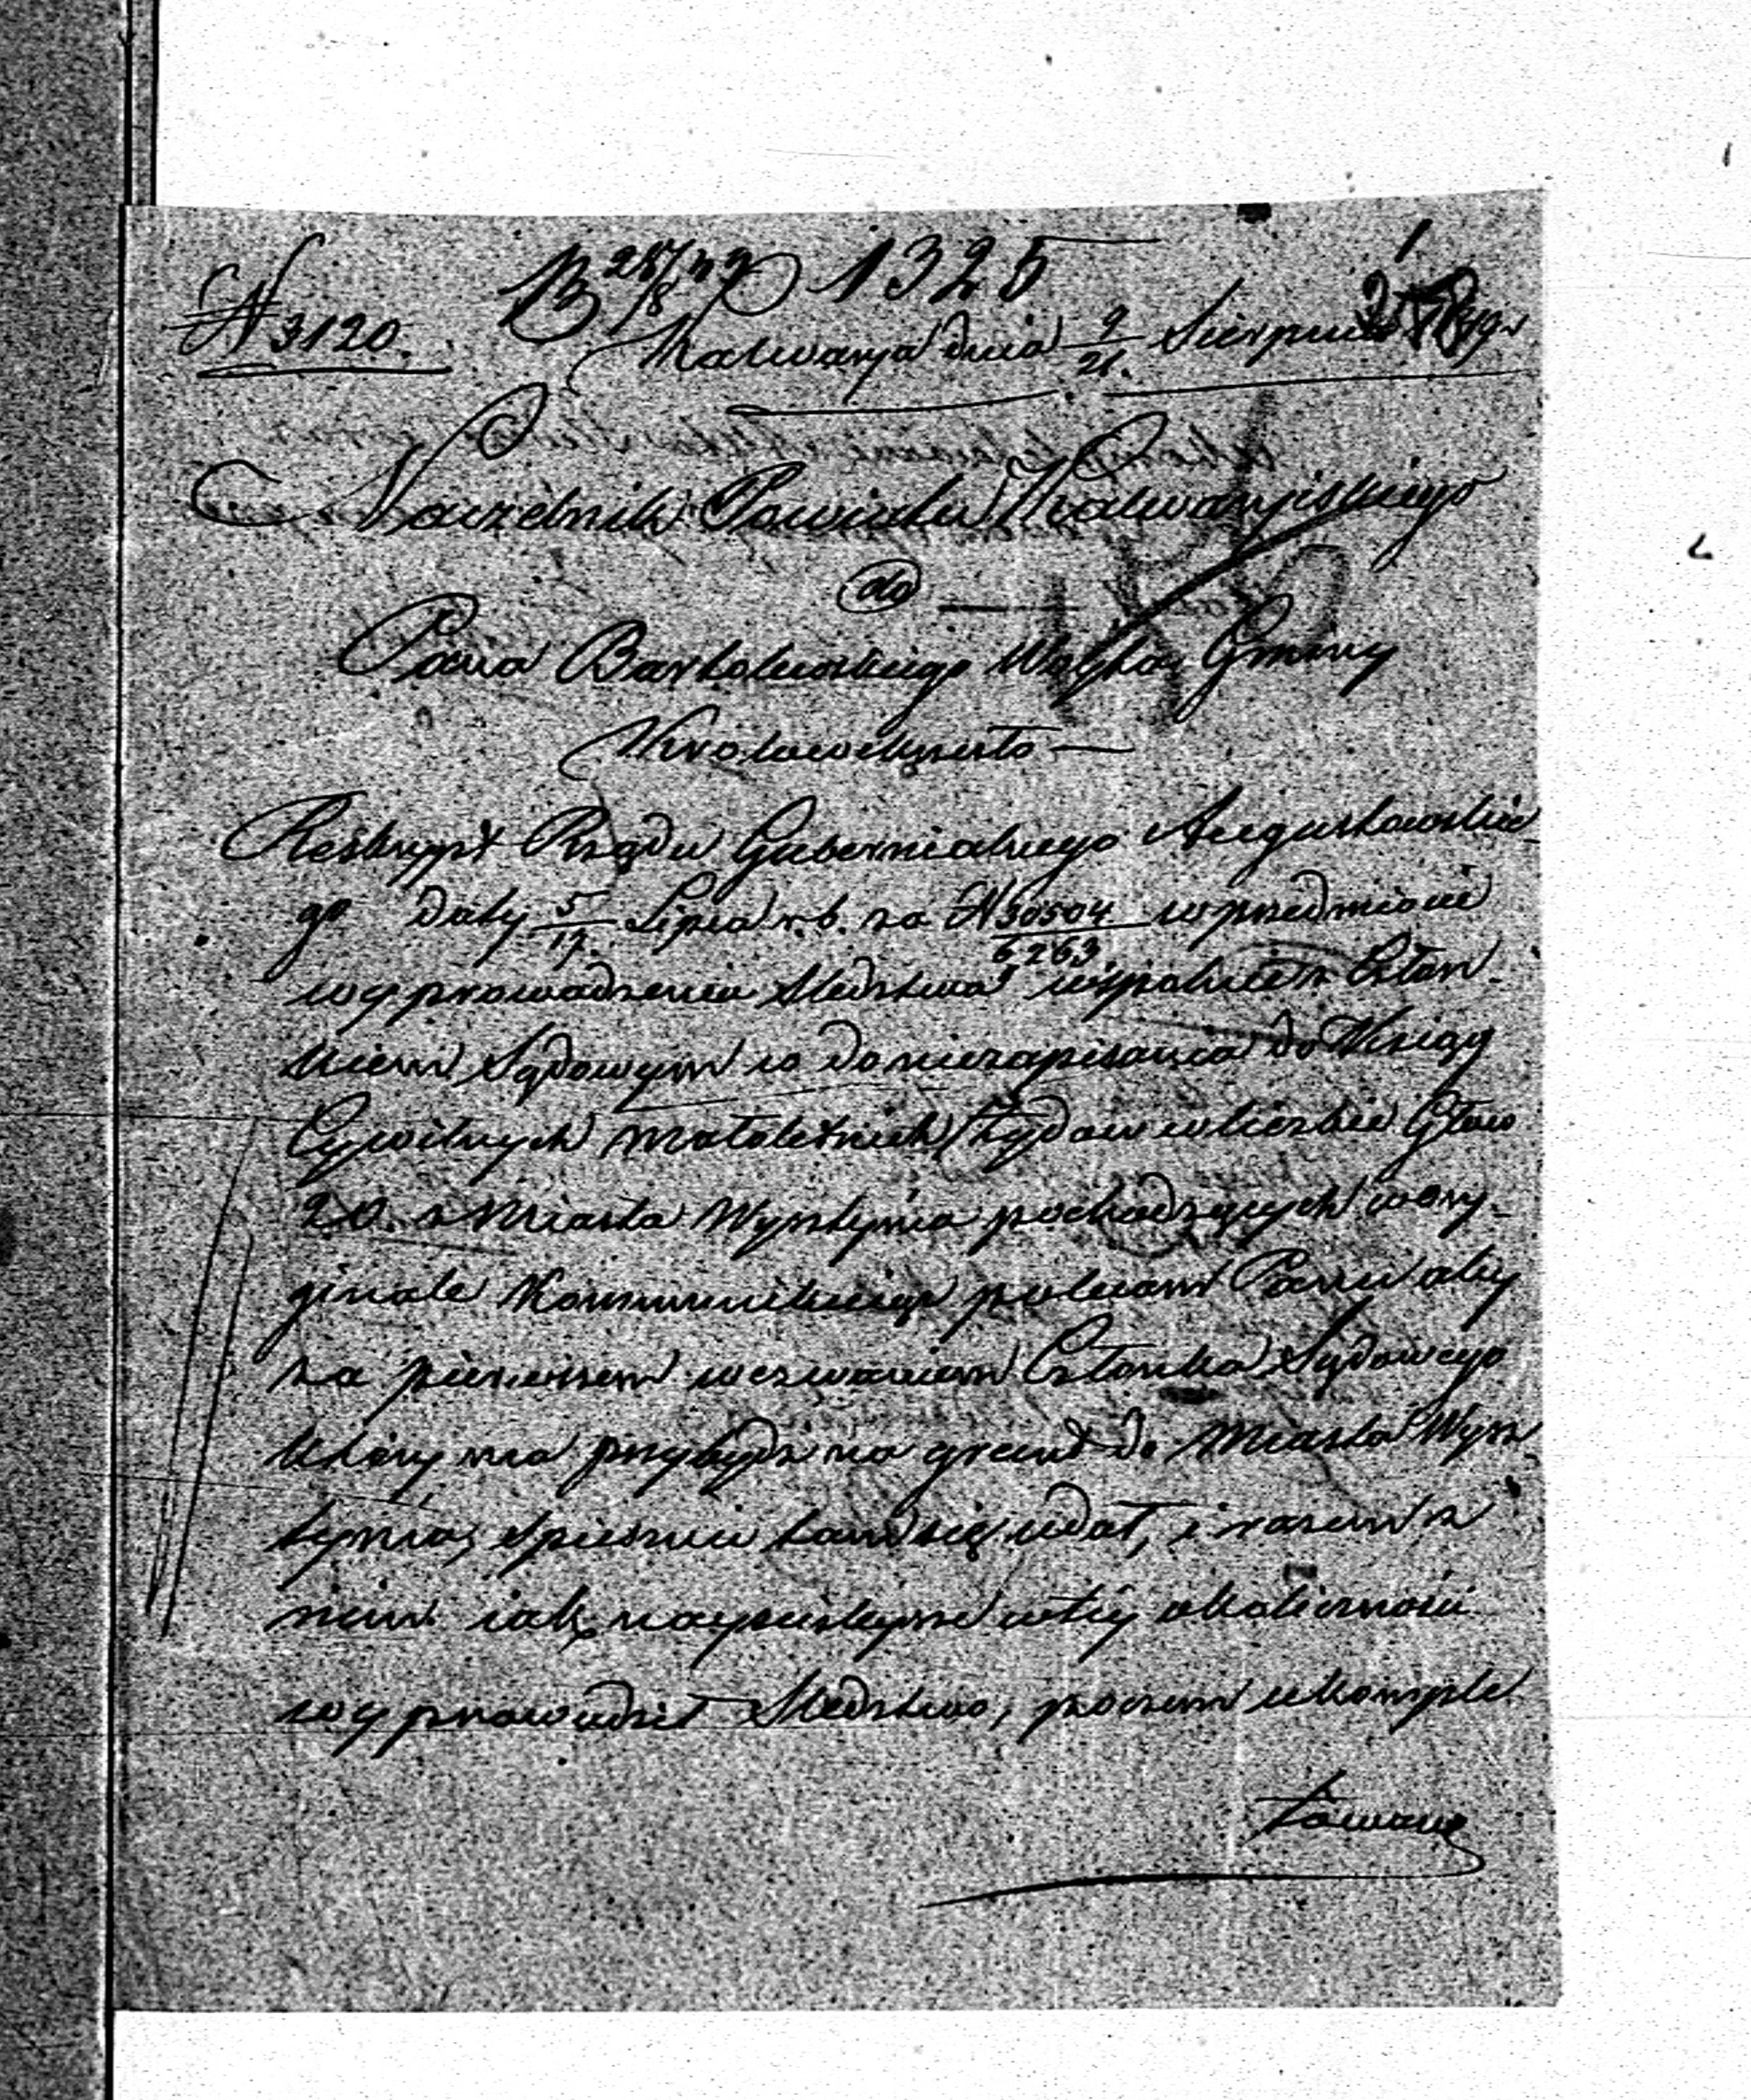 B 28/8 49 1325
N 3120.
Kalwarya dnia 9/21. Sierpnia 1849 r
Naczelnik Powiatu Kalwaryiskiego
do
Pana Bartolewskiego Woyta Gminy
Krolowekrzesło
Reskrypt Rządu Gubernialnego Augustowskie
go daty 5/17. Lipca r. b. za N 30504/6263 w przedmiocie
wyprowadzenia Sledztwa wspolnie z Człon
kiem Sądowym co do niezapisania do Xsiąg
Cywilnych małoletnich Żydow w liczbie Głow
20. z Miasta Wysztynia pochodzących w ory-
ginale kommunikuiąc polecam Panu aby
za pierwszem wezwaniem Członka Sądowego
który ma przybydź na grunt do Miasta Wysz
tynia, spiesznie tam się udał, i razem z
nim iak nayscislejsze w tey okoliczności
wyprowadził Sledztwo, poczem ukomple
towane